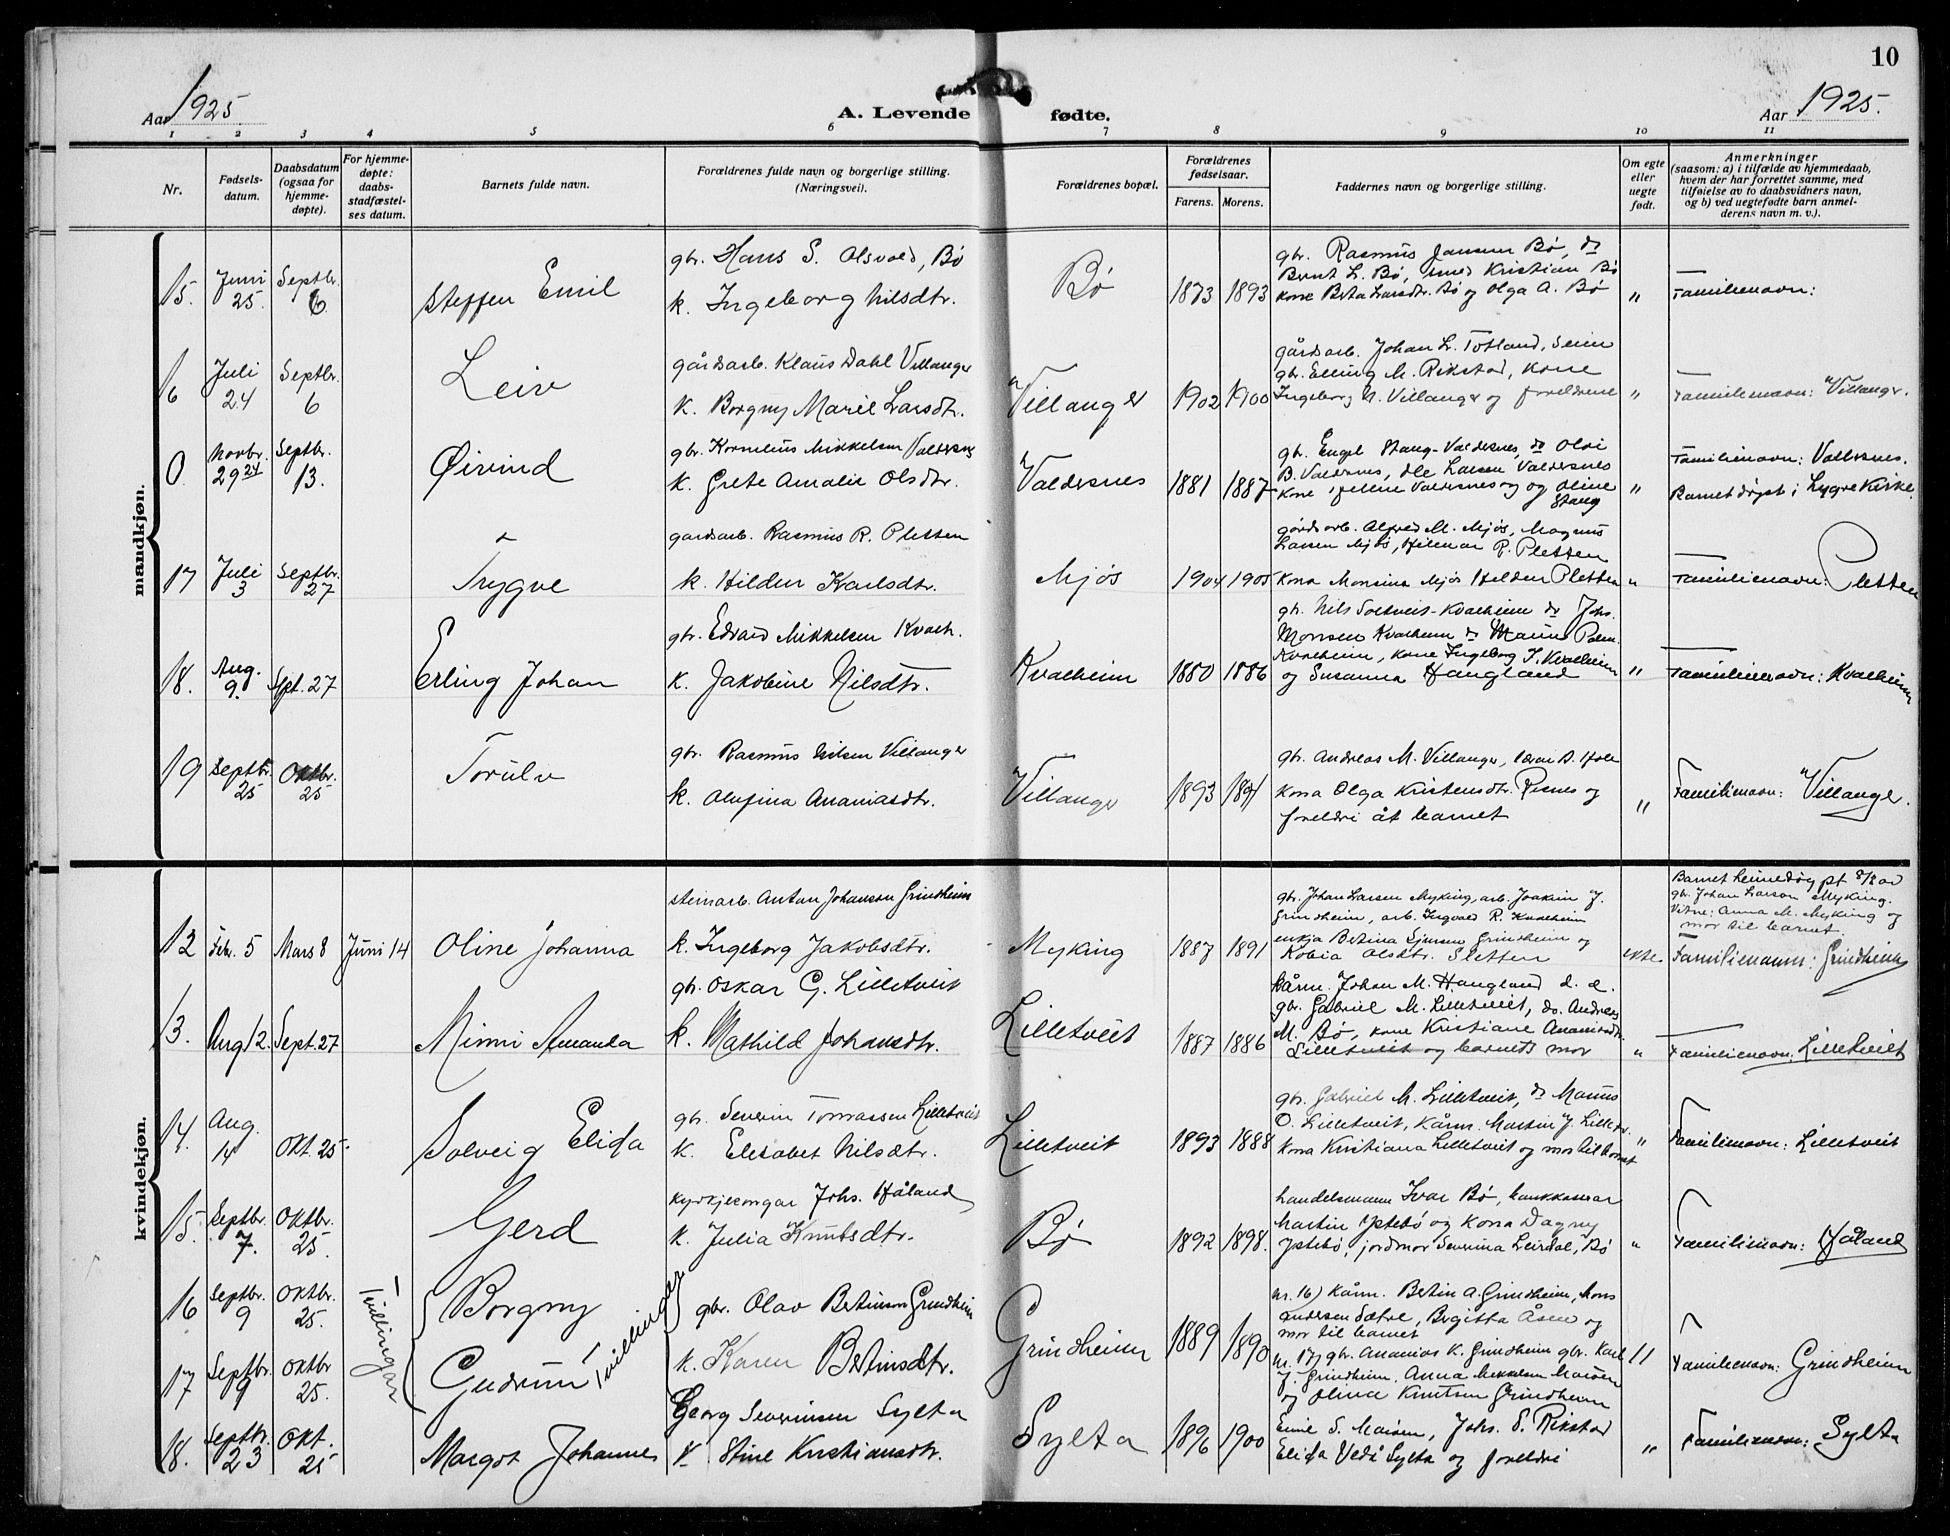 10
Aar 1925.
A. Levende fødte.
Aar 1925.
1 2 3 4 5 6 7 8 9 10 11
Nr.
Fødsels-
datum.
Daabsdatum
(ogsaa for
hjemme-
døpte).
For hjemme-
døpte:
daabs-
stadfæstel-
ses datum.
Barnets fulde navn.
Forældrenes fulde navn og borgerlige stilling.
(Næringsvei).
Forældrenes bopæl.
Forældrenes
fødselsaar.
Farens. Morens.
Faddernes navn og borgerlige stilling.
Om egte
eller
uegte
født.
Anmerkninger
(saasom: a) i tilfælde av hjemmedaab,
hvem der har forrettet samme, med
tilføielse av to daabsvidners navn,
og b) ved uegtefødte barn anmel-
derens navn m. v.).
mandkjøn.
15. Juni 25. Septbr. 6. Steffen Emil
gbr. Hans S. Olsvold, Bø
k. Ingeborg Nilsdtr.
Bø 1873 1893
gbr. Rasmus Jansen Bø, do
Bernt L. Bø, smed Kristian Bø
kone Berta Larsdtr. Bø og Olga A. Bø
" Familienavn:
16 Juli 24 Septbr. 6 Leiv
gårdsarb. Klaus Dahl Villanger
k. Borgny Marie Larsdtr.
Villanger 1902 1900
gårdsarb. Johan L. Totland, Seim
gbr. Elling M. Rikstad, kone
Ingeborg N. Villanger og foreldrene
" Familienavn: Villanger.
0 Novbr. 29 24 Septbr. 13. Øivind
gbr. Kornelius Mikkelsen Valdersnes
k. Grete Amalie Olsdtr.
Valdersnes 1881 1887
gbr. Engel Stang-Valdersnes, do Olai
B. Valdersnes, Ole Larsen Valdersnes
kone Valdersnes og Oline
Stang
" Familienavn: Valdersnes.
Barnet døypt i Lygre Kirke.
17 Juli 3 Septbr. 27 Trygve
gardsarb. Rasmus R. Pletten
k. Hildur Karlsdtr.
Mjøs 1904 1905
gårdsarb. Alfred M. Mjøs, Magnus
Larsen Mjøs, Hilmar R. Pletten
kona Monsina Mjøs Pletten
" Familienavn: Pletten
18. Aug. 9. Spt. 27 Erling Johan
gbr. Edvard Mikkelsen Kvalh.
k. Jakobine Nilsdtr.
Kvalheim 1880 1886
gbr. Nils Soltveit-Kvalheim do Johs.
Monsen Kvalheim do
Kvalheim, kone Ingeborg J. Kvalheim
og Susanna Haugland
" Familienavn: Kvalheim
19 Septbr. 25 Oktbr. 25 Torulv
gbr. Rasmus Nilsen Villanger
k. Olufina Ananiasdtr.
Villanger 1893
gbr. Andreas M. Villanger,
kona Olga Kristensdtr. Risnes og
foreldri åt barnet
" Familienavn: Villanger.
kvindekjøn.
12 Febr. 5 Mars 8 Juni 14 Oline Johanna
steinarb. Anton Johansen Grindheim
k. Ingeborg Jakobsdtr.
Myking 1887 1891
gbr. Johan Larsen Myking, arb. Joakim J.
Grindheim, arb. Ingvald R. Kvalheim
enkja Betina Sjursen Grindheim og
Olsdtr. Sletten
ekte.
Barnet heimedøypt 8/3 av
gbr. Johan Larsen Myking.
Vitne: Anna M. Myking og
mor til barnet.
Familienamn: Grindheim
13. Aug 12. Sept. 27 Minni Amanda
gbr. Oskar G. Lilletveit
k. Mathild Johansdtr.
Lilletveit 1887 1886
kårm. Johan M. Haugland d. e.
gbr. Gabriel M. Lilletveit, do. Andreas
M. Bø, kone Kristiane Ananiasdtr.
Lilletveit og barnets mor
" Familienavn: Lilletveit
14. Aug. 14 Okt. 25. Solveig Elida
gbr. Severin Tomassen Lilletveit
k. Elisabet Nilsdtr.
Lilletveit 1893 1888
gbr. Gabriel M. Lilletveit, do
O. Lilletveit, Kårm. Martin J. Lilletv.
kona Kristiana Lilletveit og mor til barnet
" Familienavn: Lilletveit
15. Septbr. 7. Oktbr. 25. Gerd
kyrkjesongar Johs. Håland
k. Julia Knutsdtr.
Bø 1892 1898.
handelsmann Ivar Bø, bankkaserar
Martin Ystebø og kona Dagny
Ystebø, jordmor Severina Leirdal, Bø
" Familienavn: Håland
16 Septbr. 9 Oktbr. 25. Tvillingar Borgny
17 Septbr. 9 Oktbr 25. Gudrun Tvillingar
gbr. Olav Bertinson Grindheim
k. Karen Bertinsdtr.
Grindheim 1889 1890
nr. 16) kårm. Betin A. Grindheim, Mons
Andersen Sætre, Birgitta Åsen og
mor til barnet
nr. 17) gbr. Ananias K. Grindheim gbr. Karl
J. Grindheim, Anna Mikkelsen
og Olina Knutsen Grindheim
" Familienavn: Grindheim
18. Septbr. 23 Okt. 25 Margot Johanne
Georg Severinsen Sylta
k Stine Kristiansdtr.
Sylta 1896 1900
Emil S. Johs. S. Rikstad
Elida Sylta og foreldri
" Familienavn: Sylta